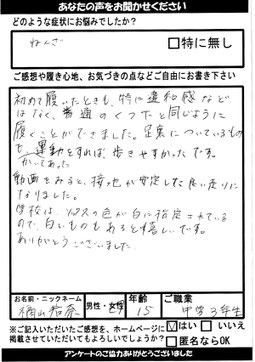 あなたの声をお聞かせください
どのような症状にお悩みでしたか?
ねんざ
□特に無し
ご感想や履き心地、お気づきの点などご自由にお書き下さい
初めて履いたときも、特に違和感など
はなく、普通のくつ下と同じように
履くことができました。足裏についているもの
も、運動をすれば、歩きやすかったです。
動画をみると、接地が安定した良い走りに
なりました。
学校は、ソックスの色が白に指定されている
ので、白いものもあると嬉しいです。
ありがとうございました。
お名前・ニックネーム
男性・女性
年齢
15
ご職業
中学3年生
※ご記入いただいたご感想を、ホームページに
掲載させていただいてもよろしいでしょうか?
☑はい □いいえ
□匿名ならOK
アンケートのご協力ありがとうございました